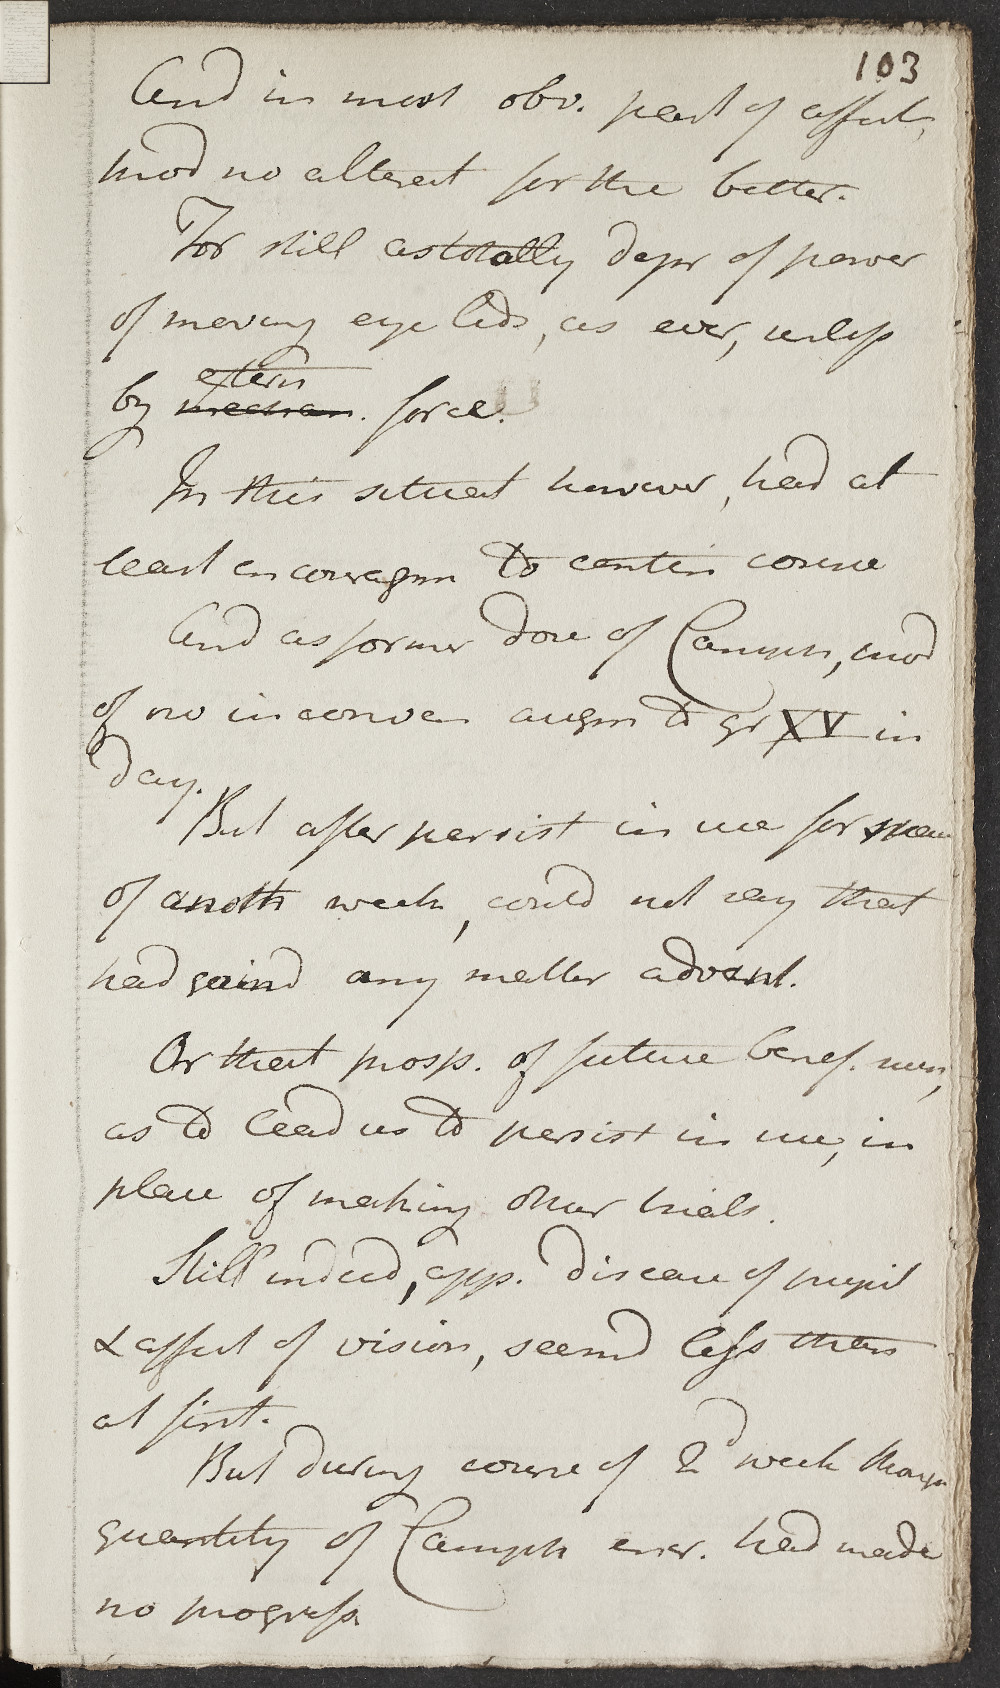 103
And in most obv. part of affect,
mod no alterat for the better.
For still as totally depr of power
of moving eye lids, as ever, unless
extern
by mechan. force.
In this situat however, had at
least encouragm to contin course
And as former dose of Camph, prod
of no inconven augm to gr XV in
day.
But after persist in use for space
of anoth week, could not say that
had gaind any matter advant.
Or that prosp. of future benef. such,
as to lead us to persist in use, in
place of making other trials.
Still indeed, app. disease of pupil
& affect of vision, seemd less than
at first.
But during course of 2d week though
quantity of Camph encr. had made
no progress